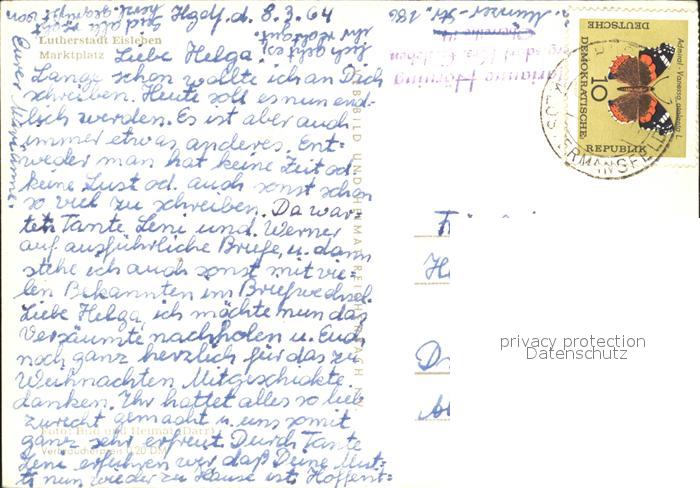 Hgdf. d. 8.3.64
Lutherstadt Eisleben
Marktplatz
Liebe Helga!
Lange schon wollte ich an Dich
schreiben. Heute soll es nun end-
lich werden. Es ist aber auch
immer etwas anderes. Ent-
weder man hat keine Zeit od.
keine Lust od. auch sonst schon
so viel zu schreiben. Da war-
ten Tante Leni und Werner
auf ausführliche Briefe, u. dann
stehe ich auch sonst mit vie-
len Bekannten im Briefwechsel.
Liebe Helga, ich möchte nun das
Versäumte nachholen u. Euch
noch ganz herzlich für das zu
Weihnachten Mitgeschickte
danken. Ihr hattet alles so lieb
zurecht gemacht u. uns somit
Foto: Bild und Heimat (Darr)
ganz sehr erfreut. Durch Tante
Verbraucherpreis 0,20 DM
Leni erfuhren wir daß Deine Mut-
ti nun wieder zu Hause ist. Hoffent-
BILD UND HEIMAT REICHENBACH
Marianne
DEUTSCHE
DEMOKRATISCHE
REPUBLIK
10
Admiral · Vanessa atalanta L.
KLOSTERMANSFELD
privacy protection
Datenschutz